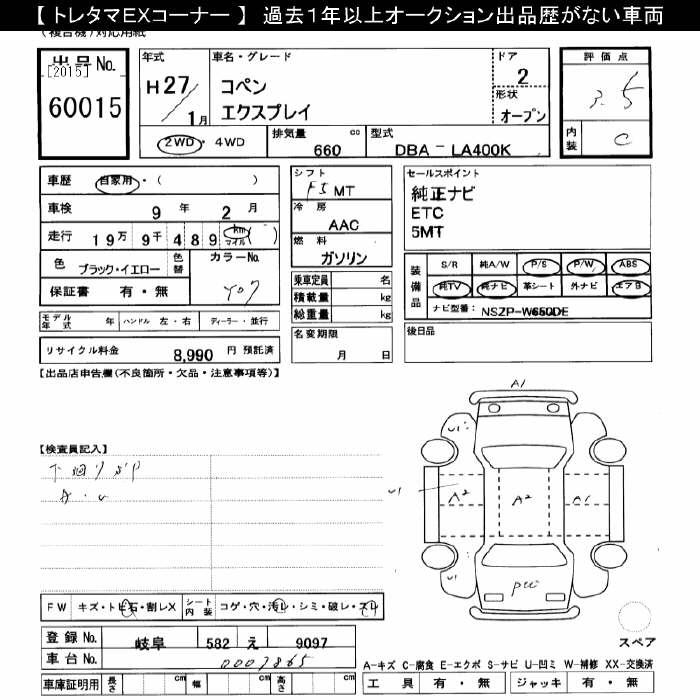 【トレタマEXコーナー】 過去1年以上オークション出品歴がない車両
(複合機)対応用紙
出品No.
[2015]
60015
年式 車名・グレード ドア
H27/1月 コペン 2
エクスプレイ 形状
オープン
2WD・4WD 排気量 660 cc 型式 DBA-LA400K
評価点
3.5
内装 C
車歴 自家用・( )
車検 9年 2月
走行 19万9千489 km マイル ( )
色 ブラック・イエロー 色替 カラーNo.
Y07
保証書 有・無
シフト
F5 MT
冷房
AAC
燃料
ガソリン
乗車定員 名
積載量 kg
総重量 kg
セールスポイント
純正ナビ
ETC
5MT
装備品
S/R 純A/W P/S P/W ABS
純TV 純ナビ 革シート 外ナビ エアB
ナビ型番: NSZP-W650DE
モデル年式 年 ハンドル 左・右 ディーラー・並行
名変期限
月 日
後日品
リサイクル料金 8,990 円 預託済
【出品店申告欄(不良箇所・欠品・注意事項等)】
【検査員記入】
下廻りサビ
A・U
A1
U1
U1
A2
A2
A1
U1
FW キズ・トビ石・割レX シート内装 コゲ・穴・汚レ・シミ・破レ・スレ
登録No. 岐阜 582 え 9097
車台No. 0007865
スペア
A-キズ C-腐食 E-エクボ S-サビ U-凹ミ W-補修 XX-交換済
車庫証明用 長さ cm 幅 cm 高さ cm
工具 有・無 ジャッキ 有・無